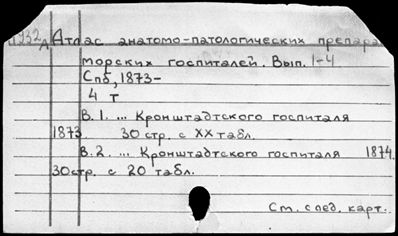 1932д Атлас анатомо-патологических препара
морских госпиталей. Вып. 1-4
Спб, 1873-
4 т
В.1. ... Кронштадтского госпиталя
1873. 30 стр. с XX табл.
В.2. ... Кронштадтского госпиталя 1874.
30стр. с 20 табл.
См. след. карт.